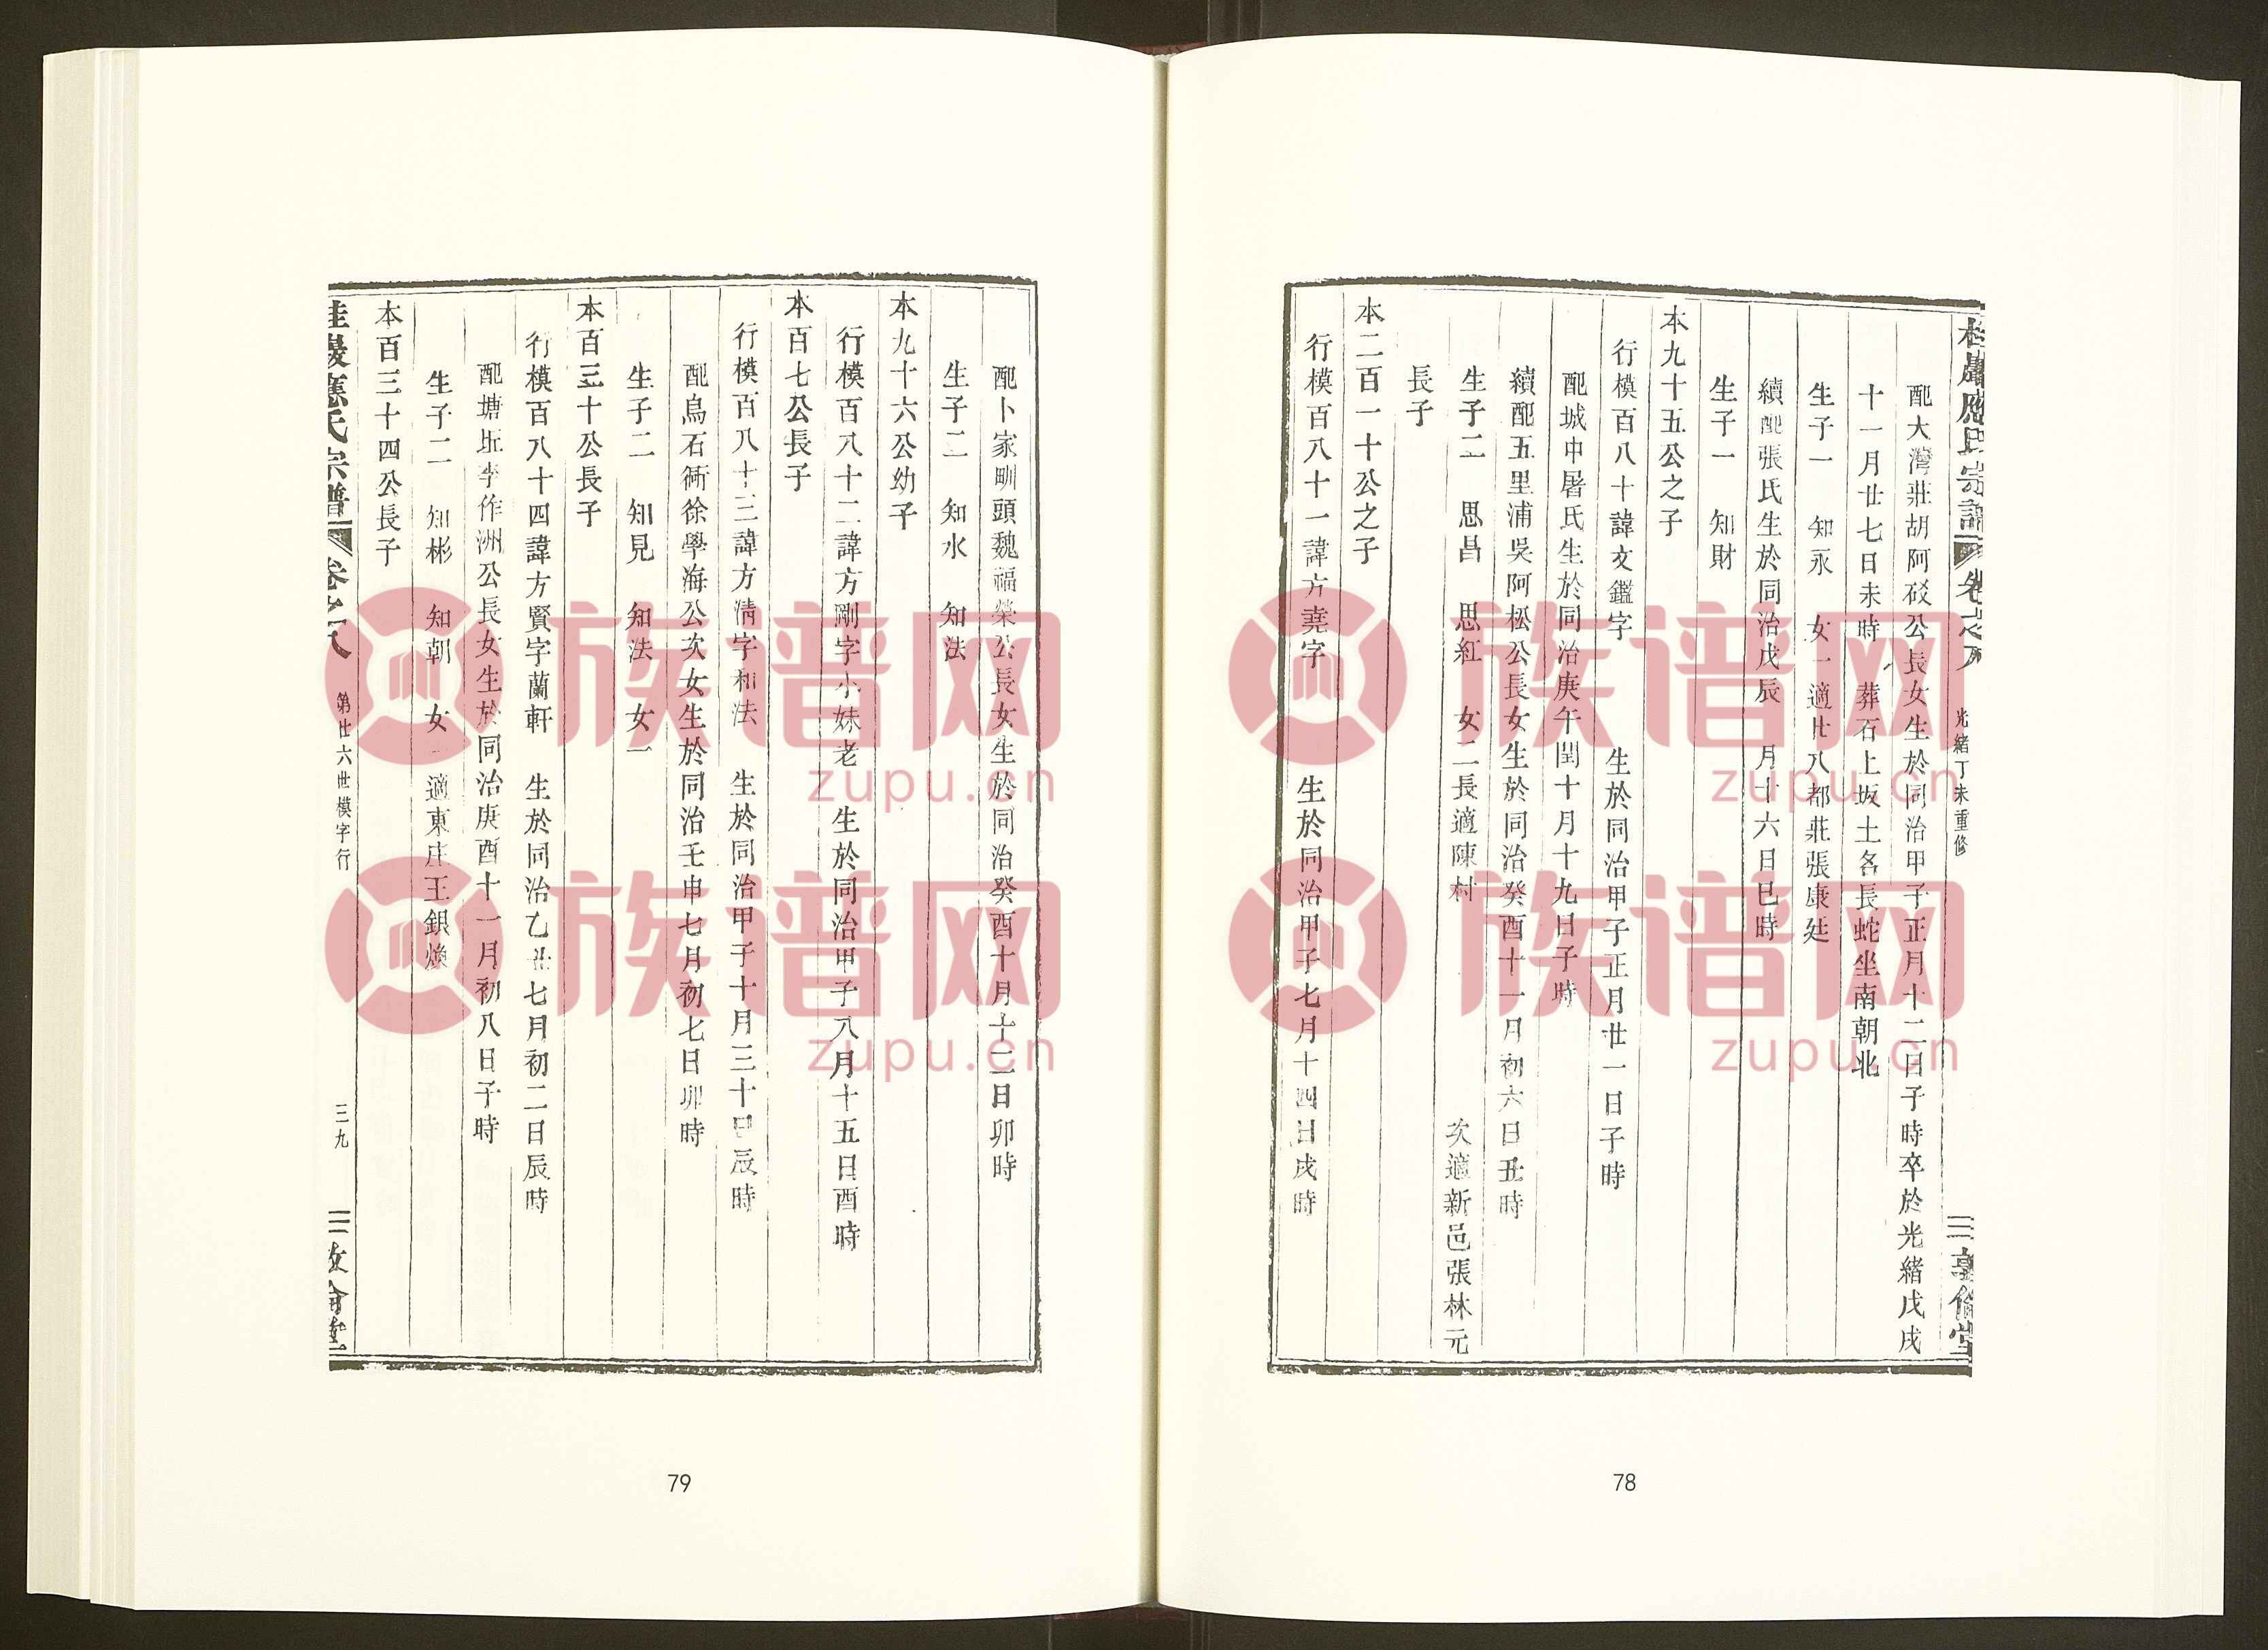 光緒丁未重修
配大灣莊胡阿砭公長女生於同治甲子正月十二日子時卒於光緒戊戌
十一月廿七日未時 葬石上坂土名長蛇坐南朝北
生子一 知永 女一適廿八都莊張康廷
續配張氏生於同治戊辰 月十六日巳時
生子一 知財
本九十五公之子
行模百八十諱文鑑字 生於同治甲子正月廿一日子時
配城中屠氏生於同治庚午閏十月十九日子時
續配五里浦吳阿松公長女生於同治癸酉十一月初六日丑時
生子二 思昌 思紅 女二長適陳村 次適新邑張林元
長子
本二百一十公之子
行模百八十一諱方堯字 生於同治甲子七月十四日戌時
78
配卜家甽頭魏福榮公長女生於同治癸酉十月十二日卯時
生子二 知水 知法
本九十六公幼子
行模百八十二諱方剛字小妹老 生於同治甲子八月十五日酉時
本百七公長子
行模百八十三諱方清字和法 生於同治甲子十月三十日辰時
配烏石衕徐學海公次女生於同治壬申七月初七日卯時
生子二 知見 知法 女一
本百三十公長子
行模百八十四諱方賢字蘭軒 生於同治乙丑七月初二日辰時
配塘坵李作洲公長女生於同治庚酉十一月初八日子時
生子二 知彬 知朝 女一適東庄王銀煥
本百三十四公長子
桂巖應氏宗譜 卷之八 第廿六世模字行 三九 敦倫堂
79
族谱网
zupu.cn
族谱网
zupu.cn
族谱网
zupu.cn
族谱网
zupu.cn